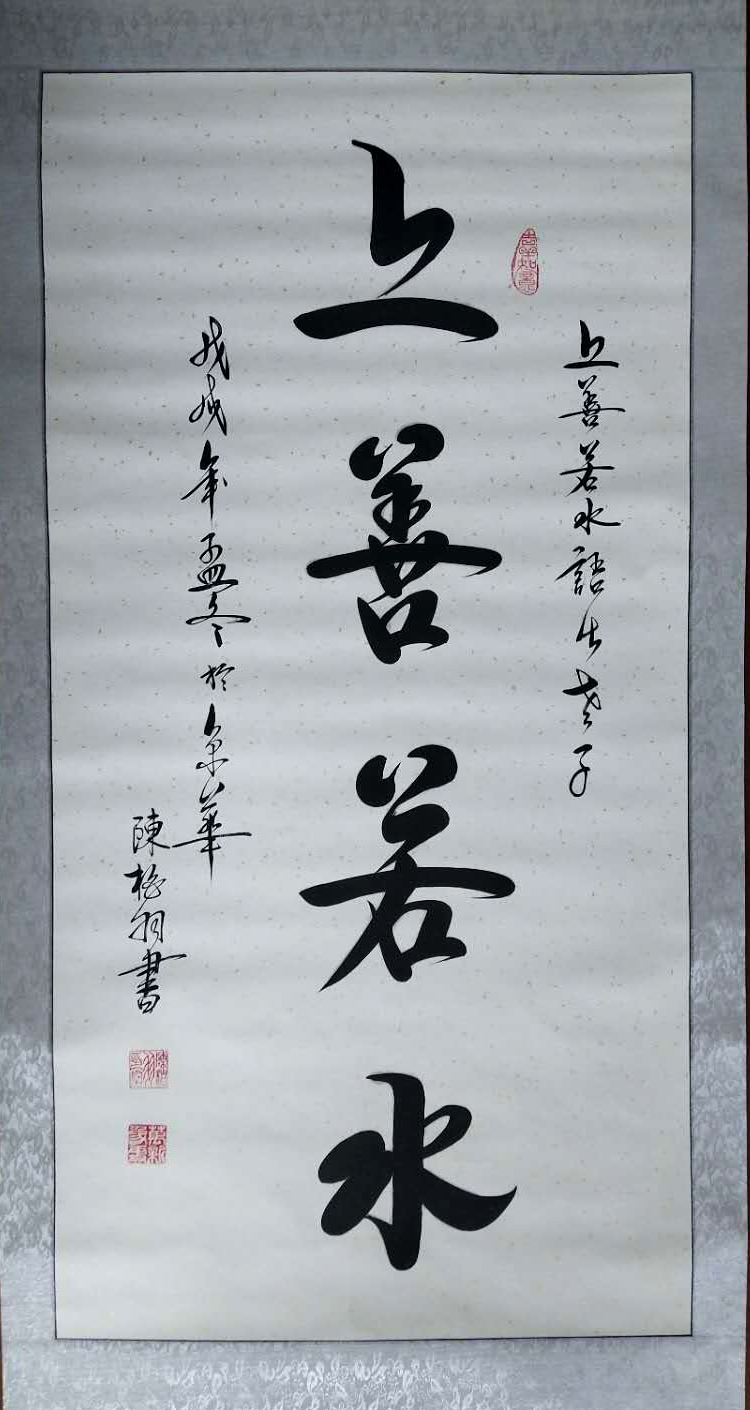 上善若水語出老子
上善若水
戊戌年孟冬於京華
陳柏羽書